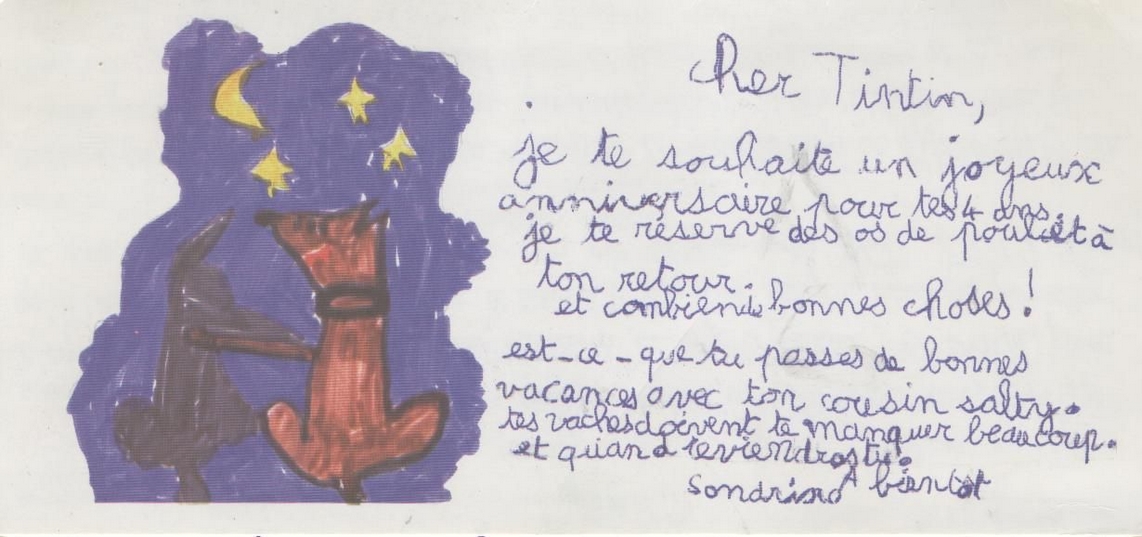 cher Tintin,
je te souhaite un joyeux
anniversaire pour tes 4 ans.
je te réserve des os de poulet à
ton retour.
et combien de bonnes choses!
est-ce-que tu passes de bonnes
vacances avec ton cousin salty.
tes vaches doivent te manquer beaucoup.
et quand reviendras tu.
Sandrine A bientot